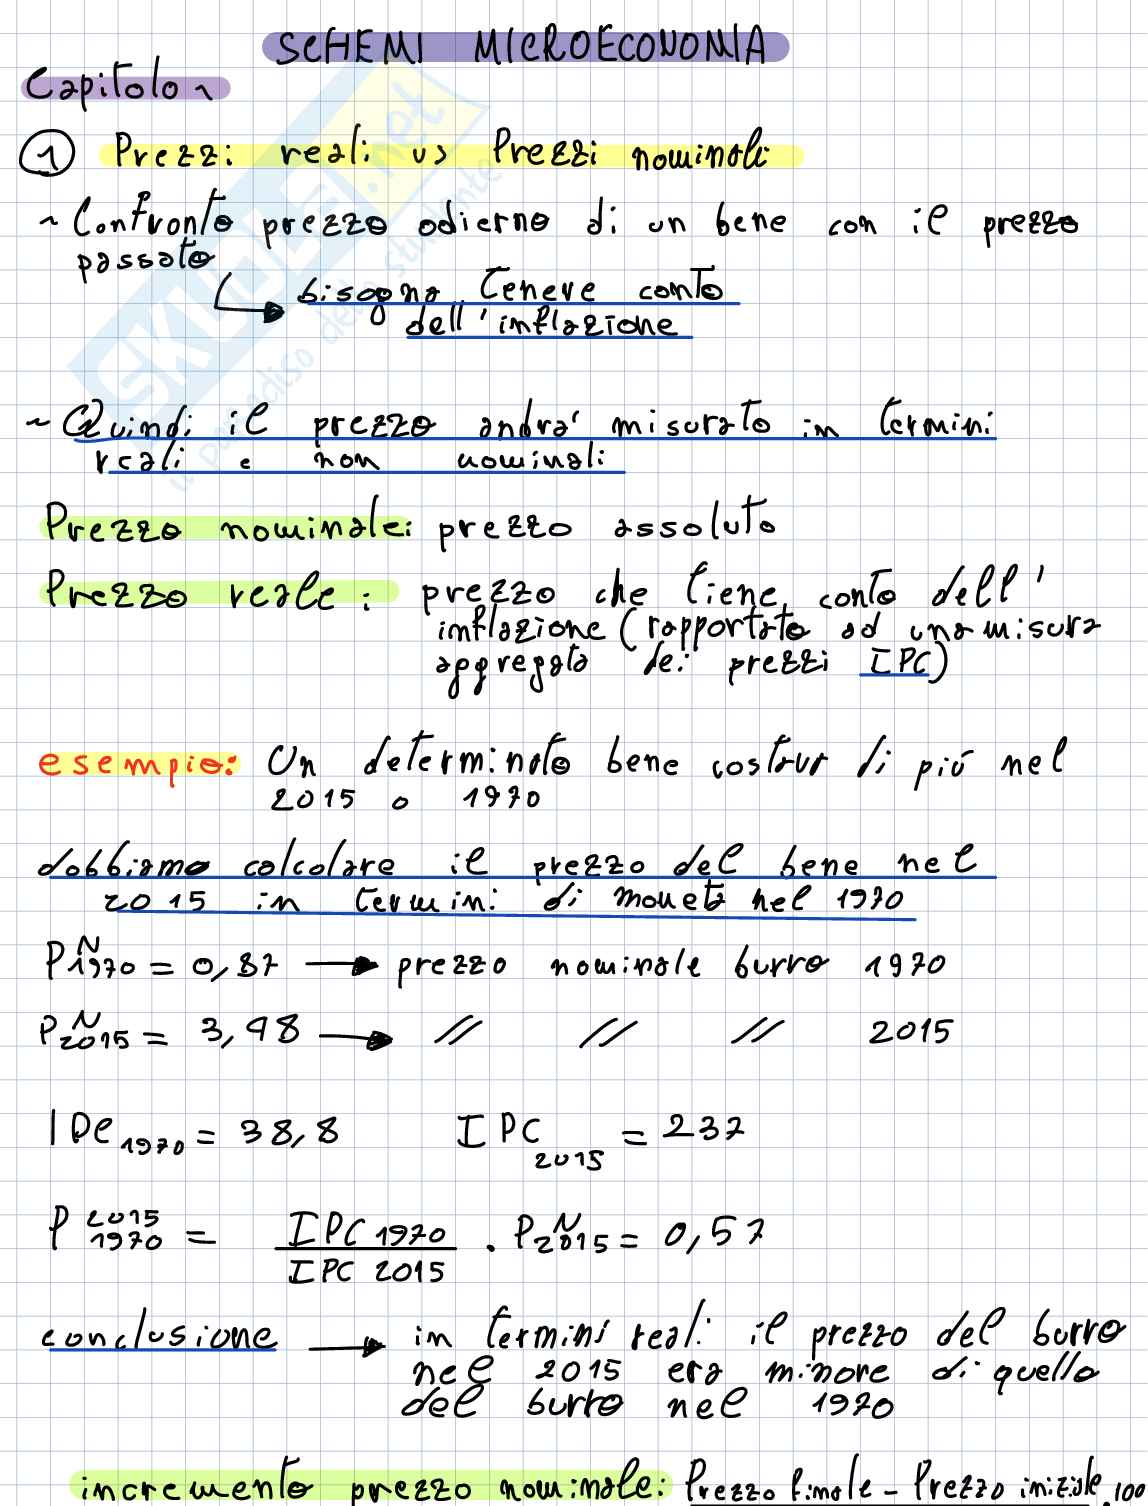 SCHEMI MICROECONOMIA
Capitolo 1
1 Prezzi reali vs Prezzi nominali
~ Confronto prezzo odierno di un bene con il prezzo
passato
bisogna tenere conto
dell'inflazione
~ Quindi il prezzo andra' misurato in termini
reali e non nominali
Prezzo nominale: prezzo assoluto
Prezzo reale: prezzo che tiene conto dell'
inflazione (rapportato ad una misura
aggregata dei prezzi IPC)
esempio: Un determinato bene costava di piú nel
2015 o 1970
dobbiamo calcolare il prezzo del bene nel
2015 in termini di moneta nel 1970
P N 1970 = 0,87 → prezzo nominale burro 1970
P N 2015 = 3,48 → // // // 2015
IPC 1970 = 38,8 IPC 2015 = 237
P 2015 1970 = IPC 1970 / IPC 2015 · P N 2015 = 0,57
conclusione → in termini reali il prezzo del burro
nel 2015 era minore di quello
del burro nel 1970
incremento prezzo nominale: Prezzo finale - Prezzo iniziale . 100
SKUOLA.net
il paradiso dello studente